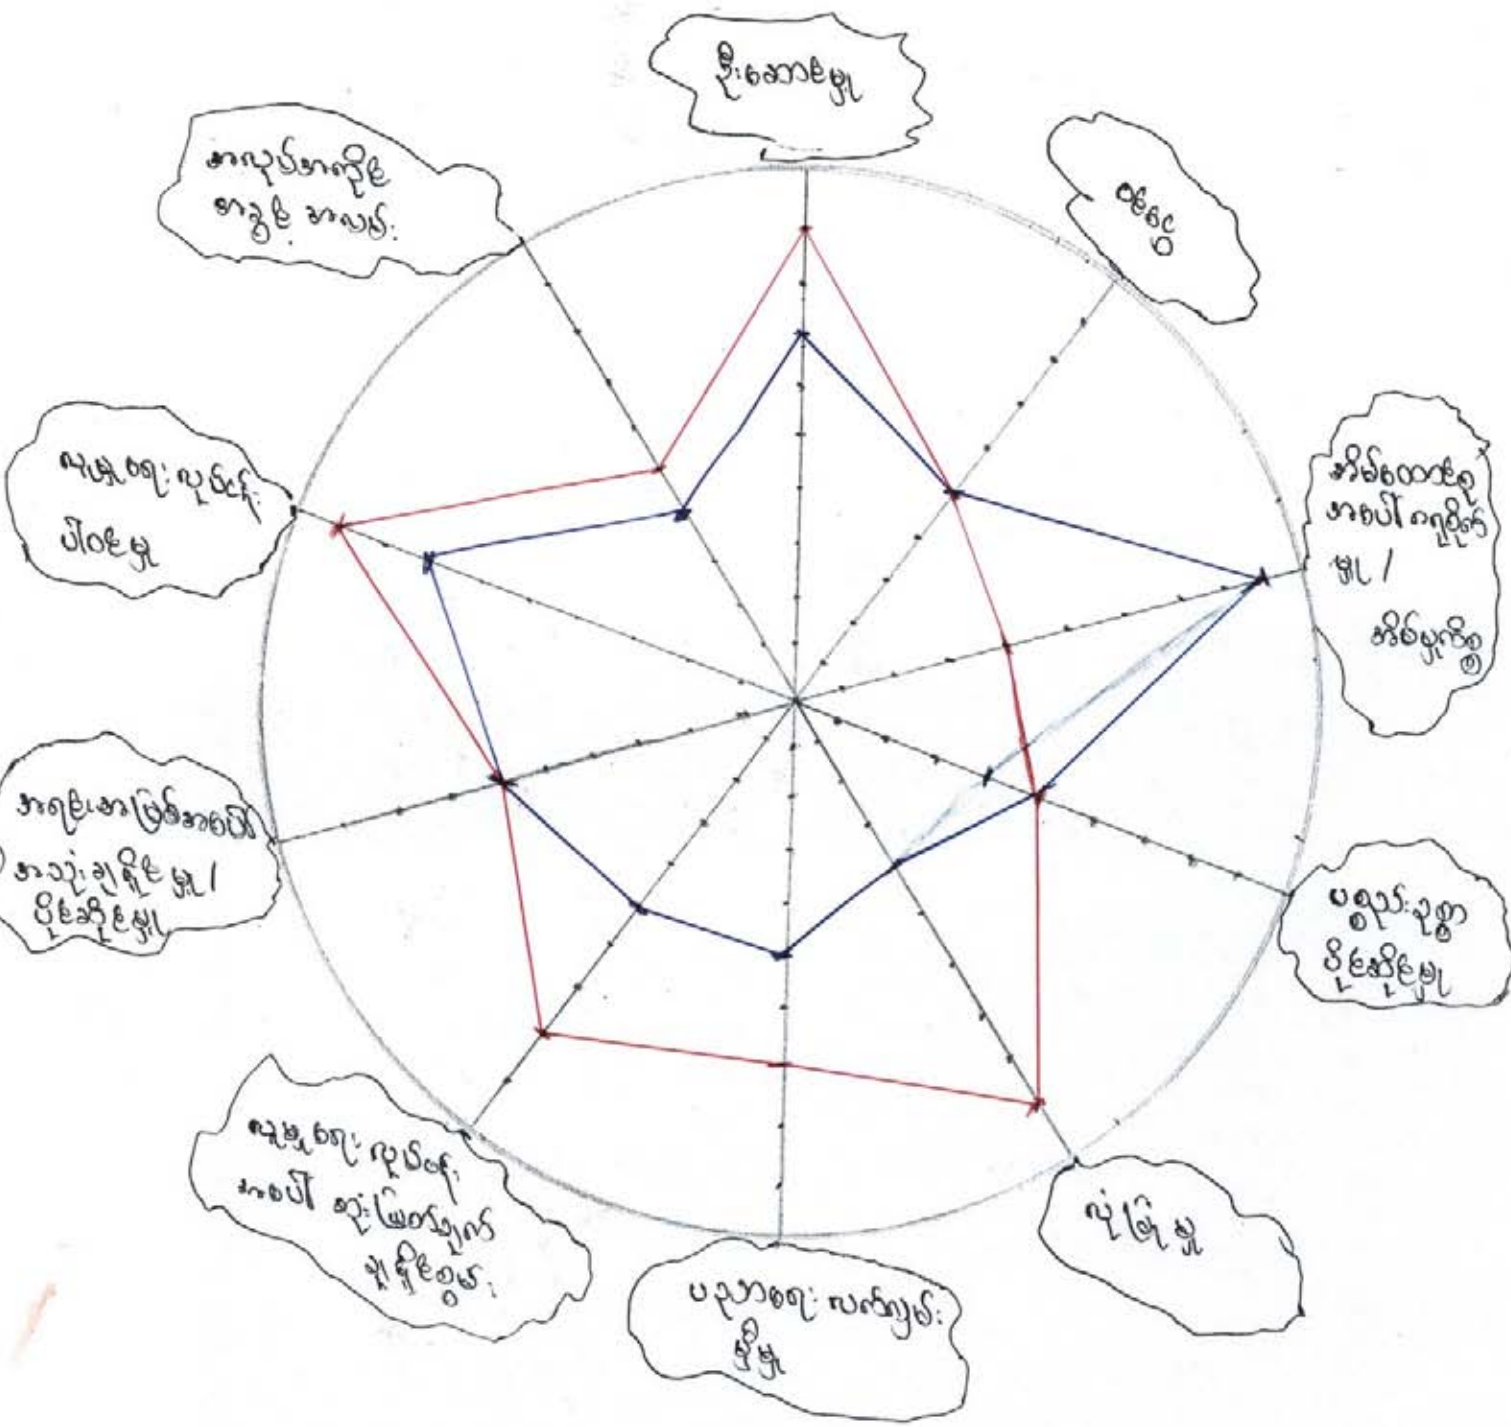 ဦးဆောင်မှု
ဝင်ငွေ
အိမ်ထောင်စု
အပေါ် ဂရုစိုက်
မှု /
အိမ်မှုကိစ္စ
ပစ္စည်းဥစ္စာ
ပိုင်ဆိုင်မှု
လုံခြုံမှု
ပညာရေး လက်လှမ်း
မှီမှု
လူမှုရေး လုပ်ငန်း
အပေါ် ဆုံးဖြတ်ချက်
ချနိုင်စွမ်း
အရင်းအမြစ်အပေါ်
အသုံးချနိုင်မှု /
ပိုင်ဆိုင်မှု
လူမှုရေး လုပ်ငန်း
ပါဝင်မှု
အလုပ်အကိုင်
အခွင့်အလမ်း